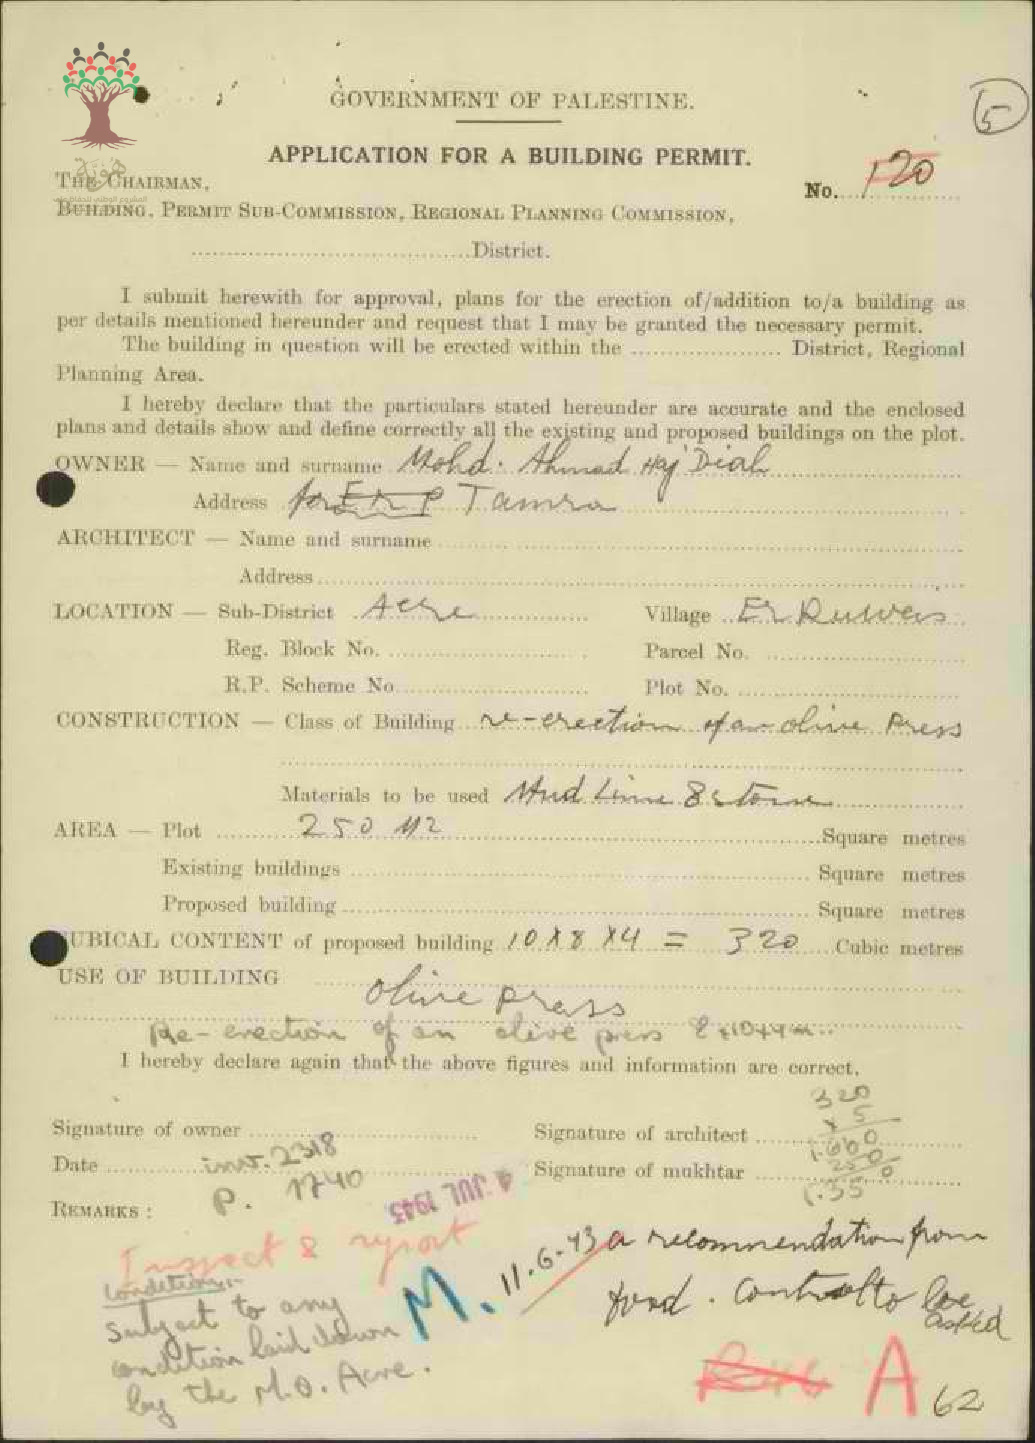 هوية
5
GOVERNMENT OF PALESTINE.
APPLICATION FOR A BUILDING PERMIT.
THE CHAIRMAN,
No. 120
BUILDING, PERMIT SUB-COMMISSION, REGIONAL PLANNING COMMISSION,
District.
I submit herewith for approval, plans for the erection of/addition to/a building as
per details mentioned hereunder and request that I may be granted the necessary permit.
The building in question will be erected within the .................... District, Regional
Planning Area.
I hereby declare that the particulars stated hereunder are accurate and the enclosed
plans and details show and define correctly all the existing and proposed buildings on the plot.
OWNER — Name and surname Mohd. Ahmad Haj Diab
Address Tamra
ARCHITECT — Name and surname
Address
LOCATION — Sub-District Acre Village Er Ruweis
Reg. Block No. Parcel No.
R.P. Scheme No. Plot No.
CONSTRUCTION — Class of Building re-erection of an olive press
Materials to be used Mud Lime & stone
AREA — Plot 250 M2 Square metres
Existing buildings Square metres
Proposed building Square metres
CUBICAL CONTENT of proposed building 10 x 8 x 4 = 320 Cubic metres
USE OF BUILDING
olive press
Re-erection of an olive press 8x10x4m.
I hereby declare again that the above figures and information are correct.
320
x 5
Signature of owner Signature of architect
1.600
Date inv. 2318 Signature of mukhtar
250
P. 1740
1.35
4 JUL 1943
REMARKS :
Inspect & report
M. 11.6.43 a recommendation from
food. Control to be
asked
Condition:-
Subject to any
condition laid down
by the M.O. Acre.
A
62